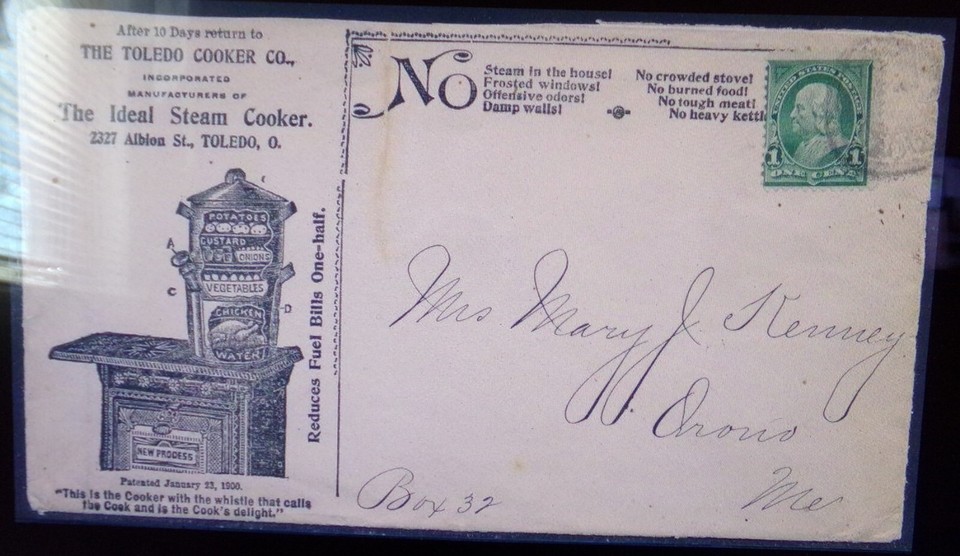 After 10 Days return to
THE TOLEDO COOKER CO.,
INCORPORATED
MANUFACTURERS OF
The Ideal Steam Cooker.
2327 Albion St., TOLEDO, O.
POTATOES
CUSTARD
ONIONS
A
VEGETABLES
C
D
CHICKEN
WATER
NEW PROCESS
Reduces Fuel Bills One-half.
Patented January 23, 1900.
"This is the Cooker with the whistle that calls
the Cook and is the Cook's delight."
No
Steam in the house!
Frosted windows!
Offensive odors!
Damp walls!
No crowded stove!
No burned food!
No tough meat!
No heavy
UNITED STATES POSTAGE
1 1
ONE CENT
Mrs Mary J. Kenney
Orono
Me
Box 32